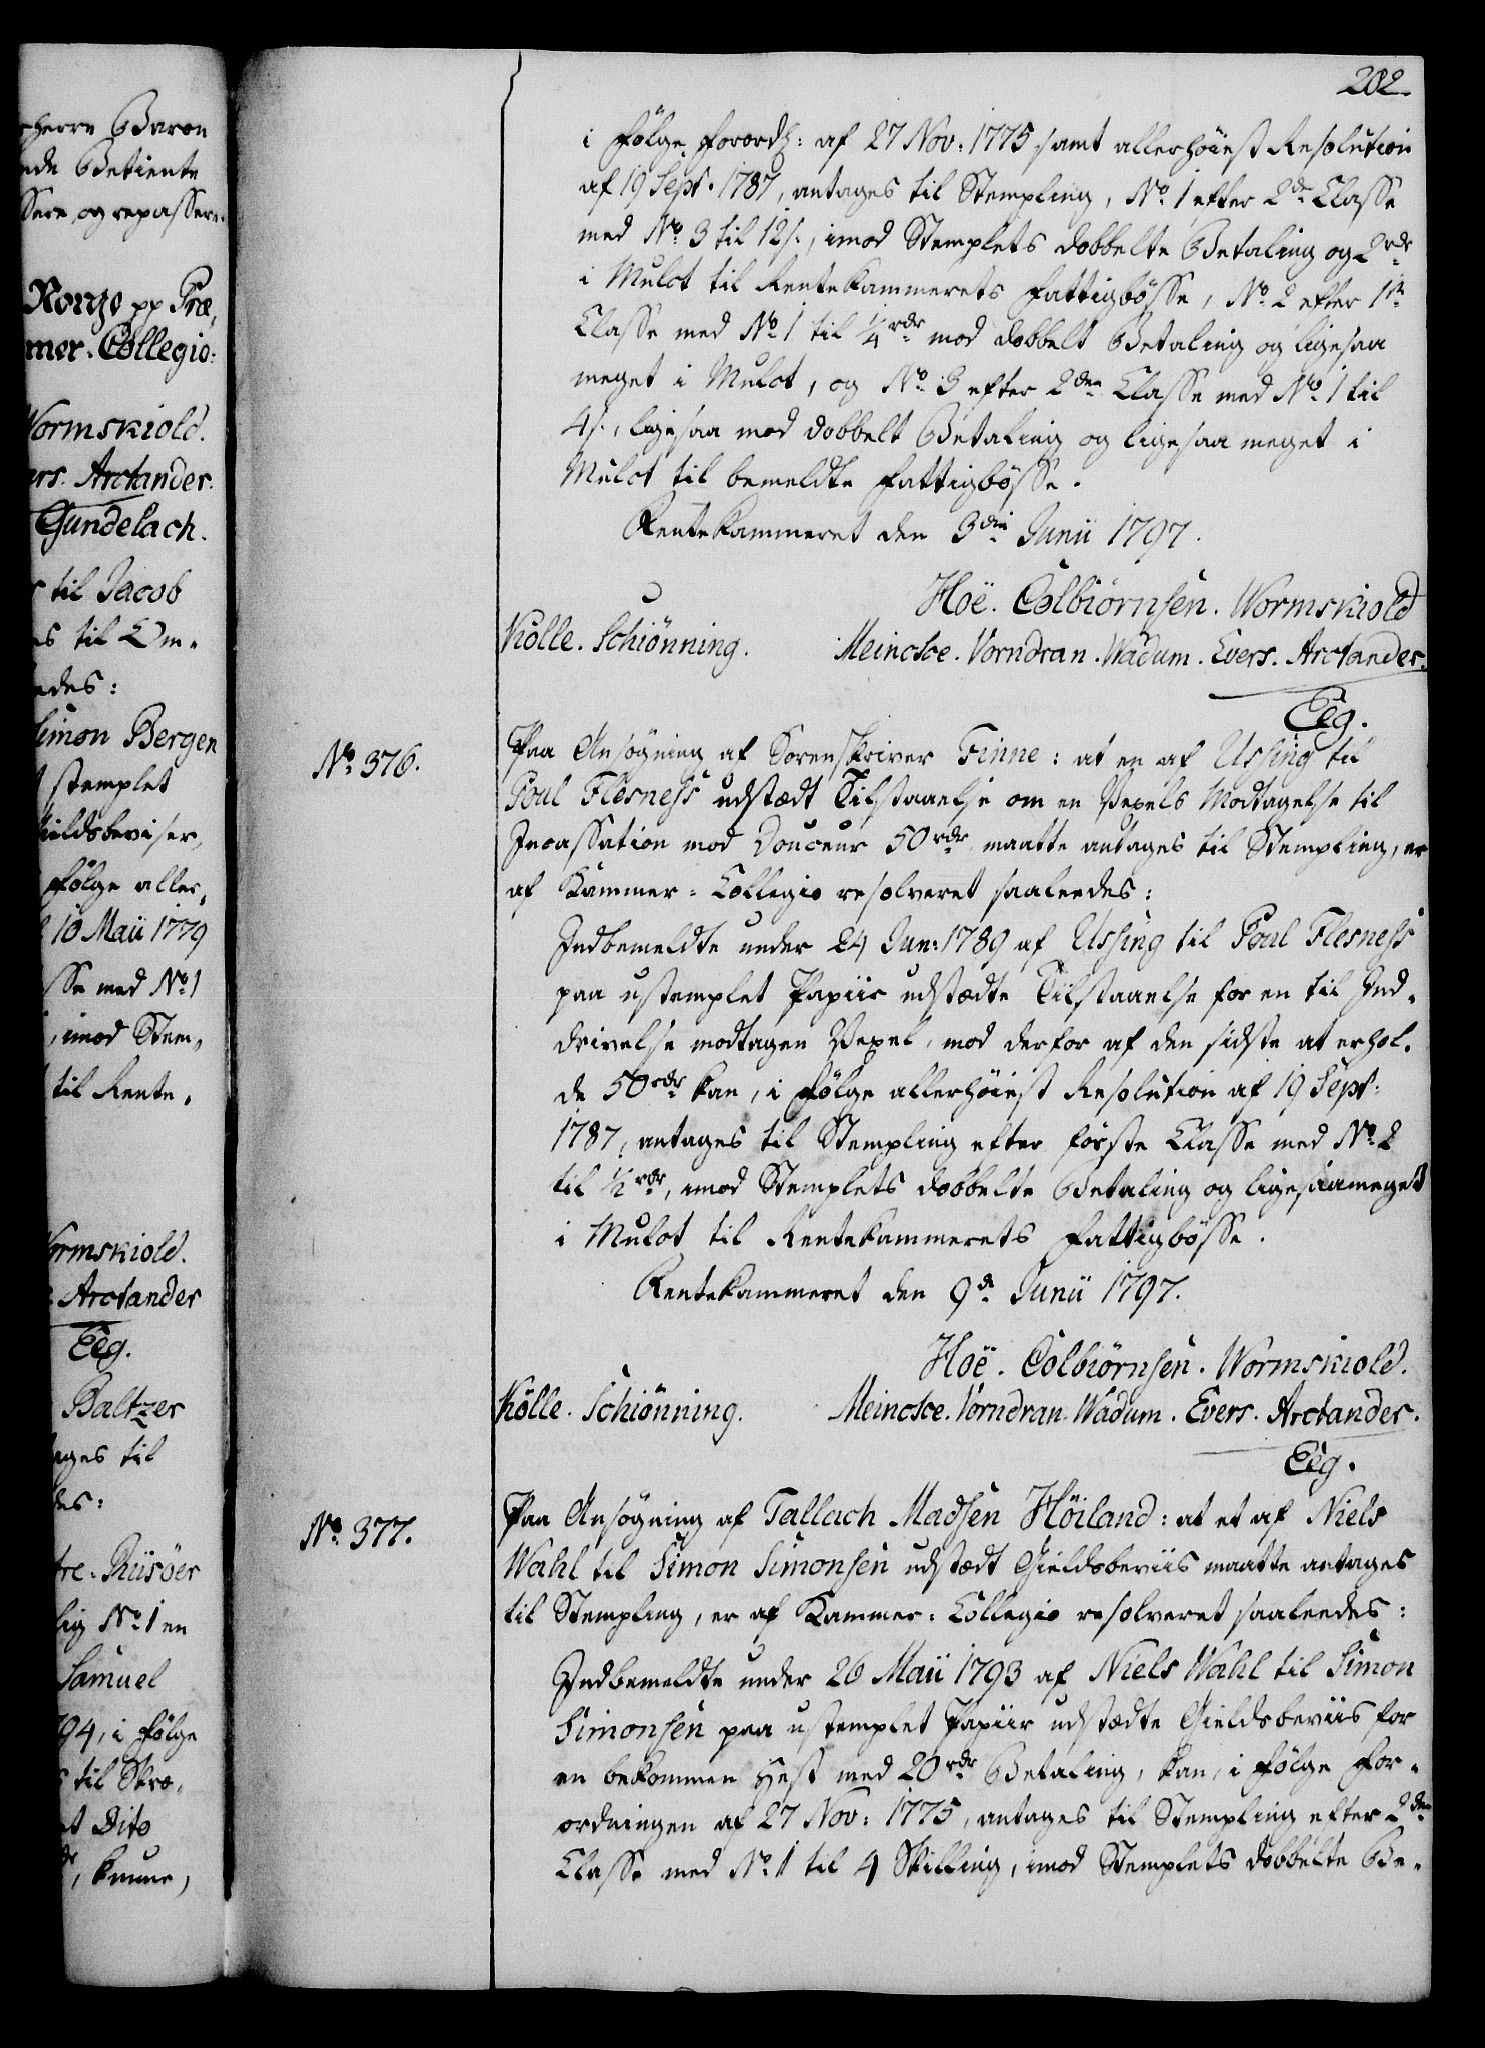 herre Baron
nde Betiente
ssere og repassere.
Norge pp Præ,
mer-Collegio:
Wormskiold.
ers. Arctander.
Gundelach.
r til Jacob
es til Om-
edes:
Simon Bergen
stemplet
ieldsbeviser,
følge aller,
10 Maii 1779
sse med No 1
, imod Stem,
til Rente,
Wormskiold.
Arctander
Eeg.
Baltzer
ages til
des:
tre-Riisöer
lig No 1 en
Samuel
794, i følge
til Skre,
et Dito
, kunne,
202.
i følge forord: af 27 Nov: 1775 samt allerhöiest Resolution
af 19 Sept. 1787, antages til Stempling, No 1 efter 2de Classe
med No 3 til 12 s., imod Stemplets dobbelte Betaling og 2 rdr
i Mulct til Rentekammerets Fattigbösse, No 2 efter 1ste
Classe med No 1 til 1/4 rdr mod dobbelt Betaling og ligesaa
meget i Mulct, og No 3 efter 2den Classe med No 1 til
4 s., ligesaa mod dobbelt Betaling og ligesaa meget i
Mulct til bemeldte Fattigbösse.
Rentekammeret den 3die Junii 1797.
Hoë. Colbiörnsen. Wormskiold
Kölle. Schiönning. Meincke. Vorndran. Wadum. Evers. Arctander.
Eeg.
No 376.
Paa Ansögning af Sorenskriver Finne: at en af Ussing til
Poul Flesness udstædt Tilstaaelse om en Vexels Modtagelse til
Incassation mod Douceur 50 rdr, maatte antages til Stempling, er
af Kammer-Collegio resolveret saaledes:
Indbemeldte under 24 Jun: 1789 af Ussing til Poul Flesness
paa ustemplet Papiir udstædte Tilstaaelse for en til Ind-
drivelse modtagen Vexel, mod derfor af den sidste at erhol-
de 50 rdr kan, i følge allerhöiest Resolution af 19 Sept:
1787, antages til Stempling efter förste Classe med No 2
til 1/2 rdr, imod Stemplets dobbelte Betaling og ligesaameget
i Mulct til Rentekammerets Fattigbösse.
Rentekammeret den 9de Junii 1797.
Hoë. Colbiörnsen. Wormskiold.
Kölle. Schiönning. Meincke. Vorndran. Wadum. Evers. Arctander.
Eeg.
No 377.
Paa Ansögning af Tallach Madsen Höiland: at et af Niels
Wahl til Simon Simonsen udstædt Gieldsbeviis maatte antages
til Stempling, er af Kammer-Collegio resolveret saaledes:
Indbemeldte under 26 Maii 1793 af Niels Wahl til Simon
Simonsen paa ustemplet Papiir udstædte Gieldsbeviis for
en bekommen Hest med 20 rdr Betaling, kan, i følge For-
ordningen af 27 Nov: 1775, antages til Stempling efter 2den
Classe med No 1 til 4 Skilling, imod Stemplets dobbelte Be-